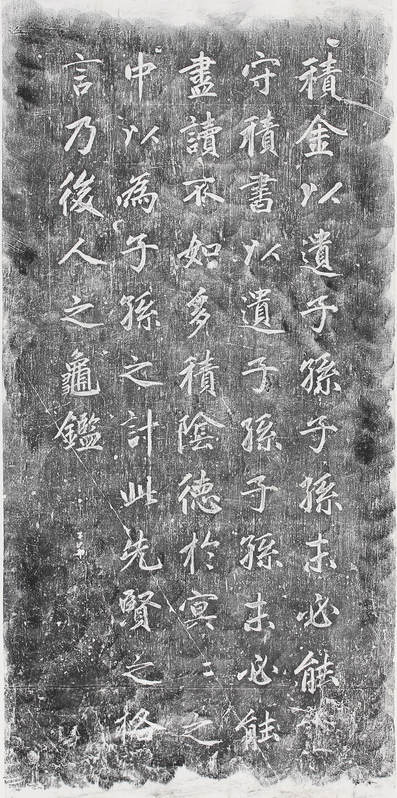 積金以遺子孫子孫未必能
守積書以遺子孫子孫未必能
盡讀不如多積陰德於冥〻之
中以為子孫之計此先賢之格
言乃後人之龜鑑